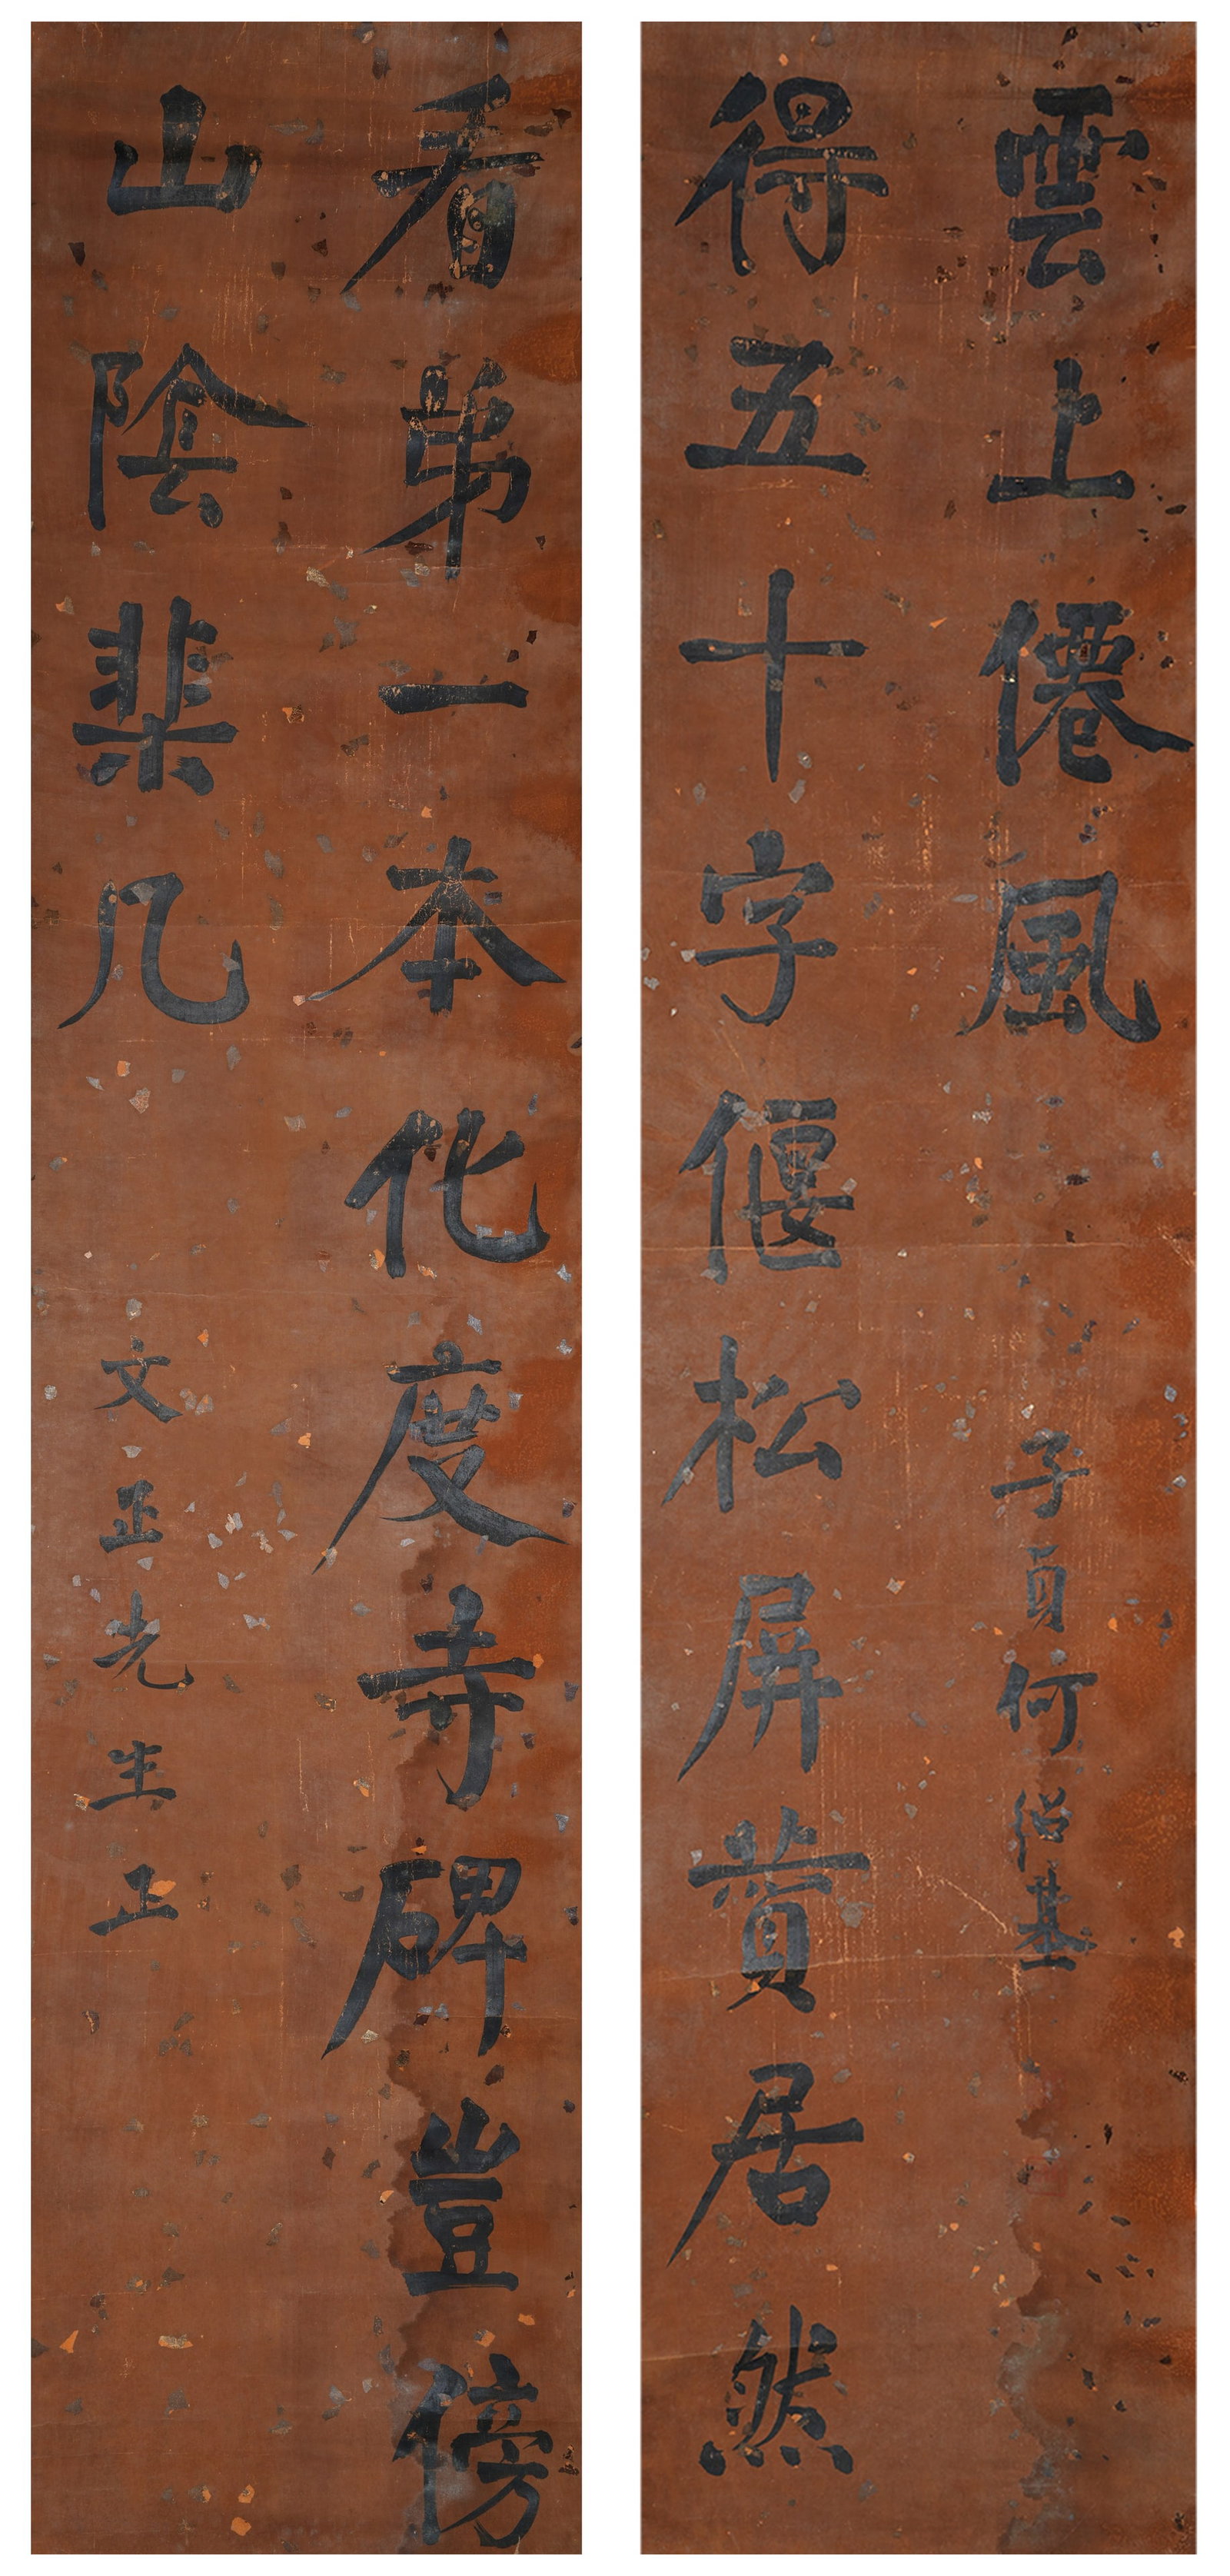 看弟一本化度寺碑豈傍
山陰棐几
文正先生正
得五十字偃松屏贊居然
雲上僊風
子貞何紹基